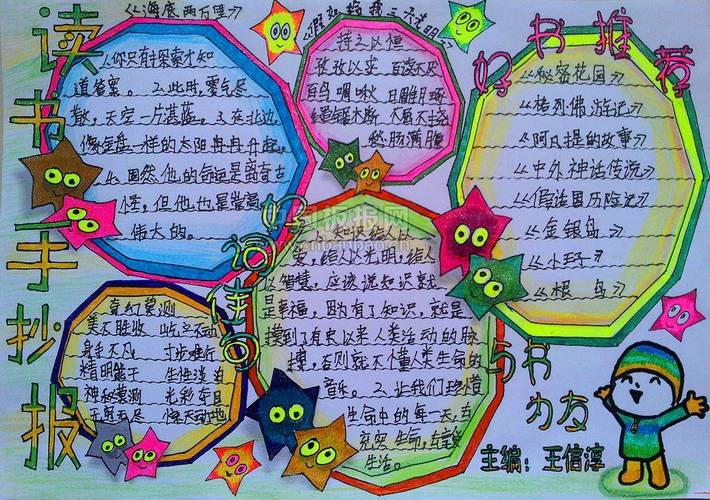 读书手抄报
《海底两万里》
1、你只有探索才知
道答案。2、此时,雾气尽
散,天空一片湛蓝。3、在北边,
像金盘一样的太阳冉冉升起。
4、固然,他的命运是离奇古
怪,但他也是崇高
伟大的。
《假如给我三天光明》
持之以恒
孜孜以求 百读不厌
百鸟啁啾
好书推荐
《秘密花园》
《格列佛游记》
《阿凡提的故事》
《中外神话传说》
《金银岛》
《小王子》
《根鸟》
好词佳句
1、知识给人以
爱,给人以光明,给人
以智慧,应该说知识就
是幸福,因为有了知识,就是
摸到了有史以来人类活动的脉
搏,否则就不懂人类生命的
音乐。2、让我们珍惜
生命中的每一天,去
充实生命,去享受
生活。
美不胜收 屹立不动
身手不凡 寸步难行
精明能干 生性淡泊
神秘莫测 光彩夺目
惊天动地
与书为友
主编:王信淳